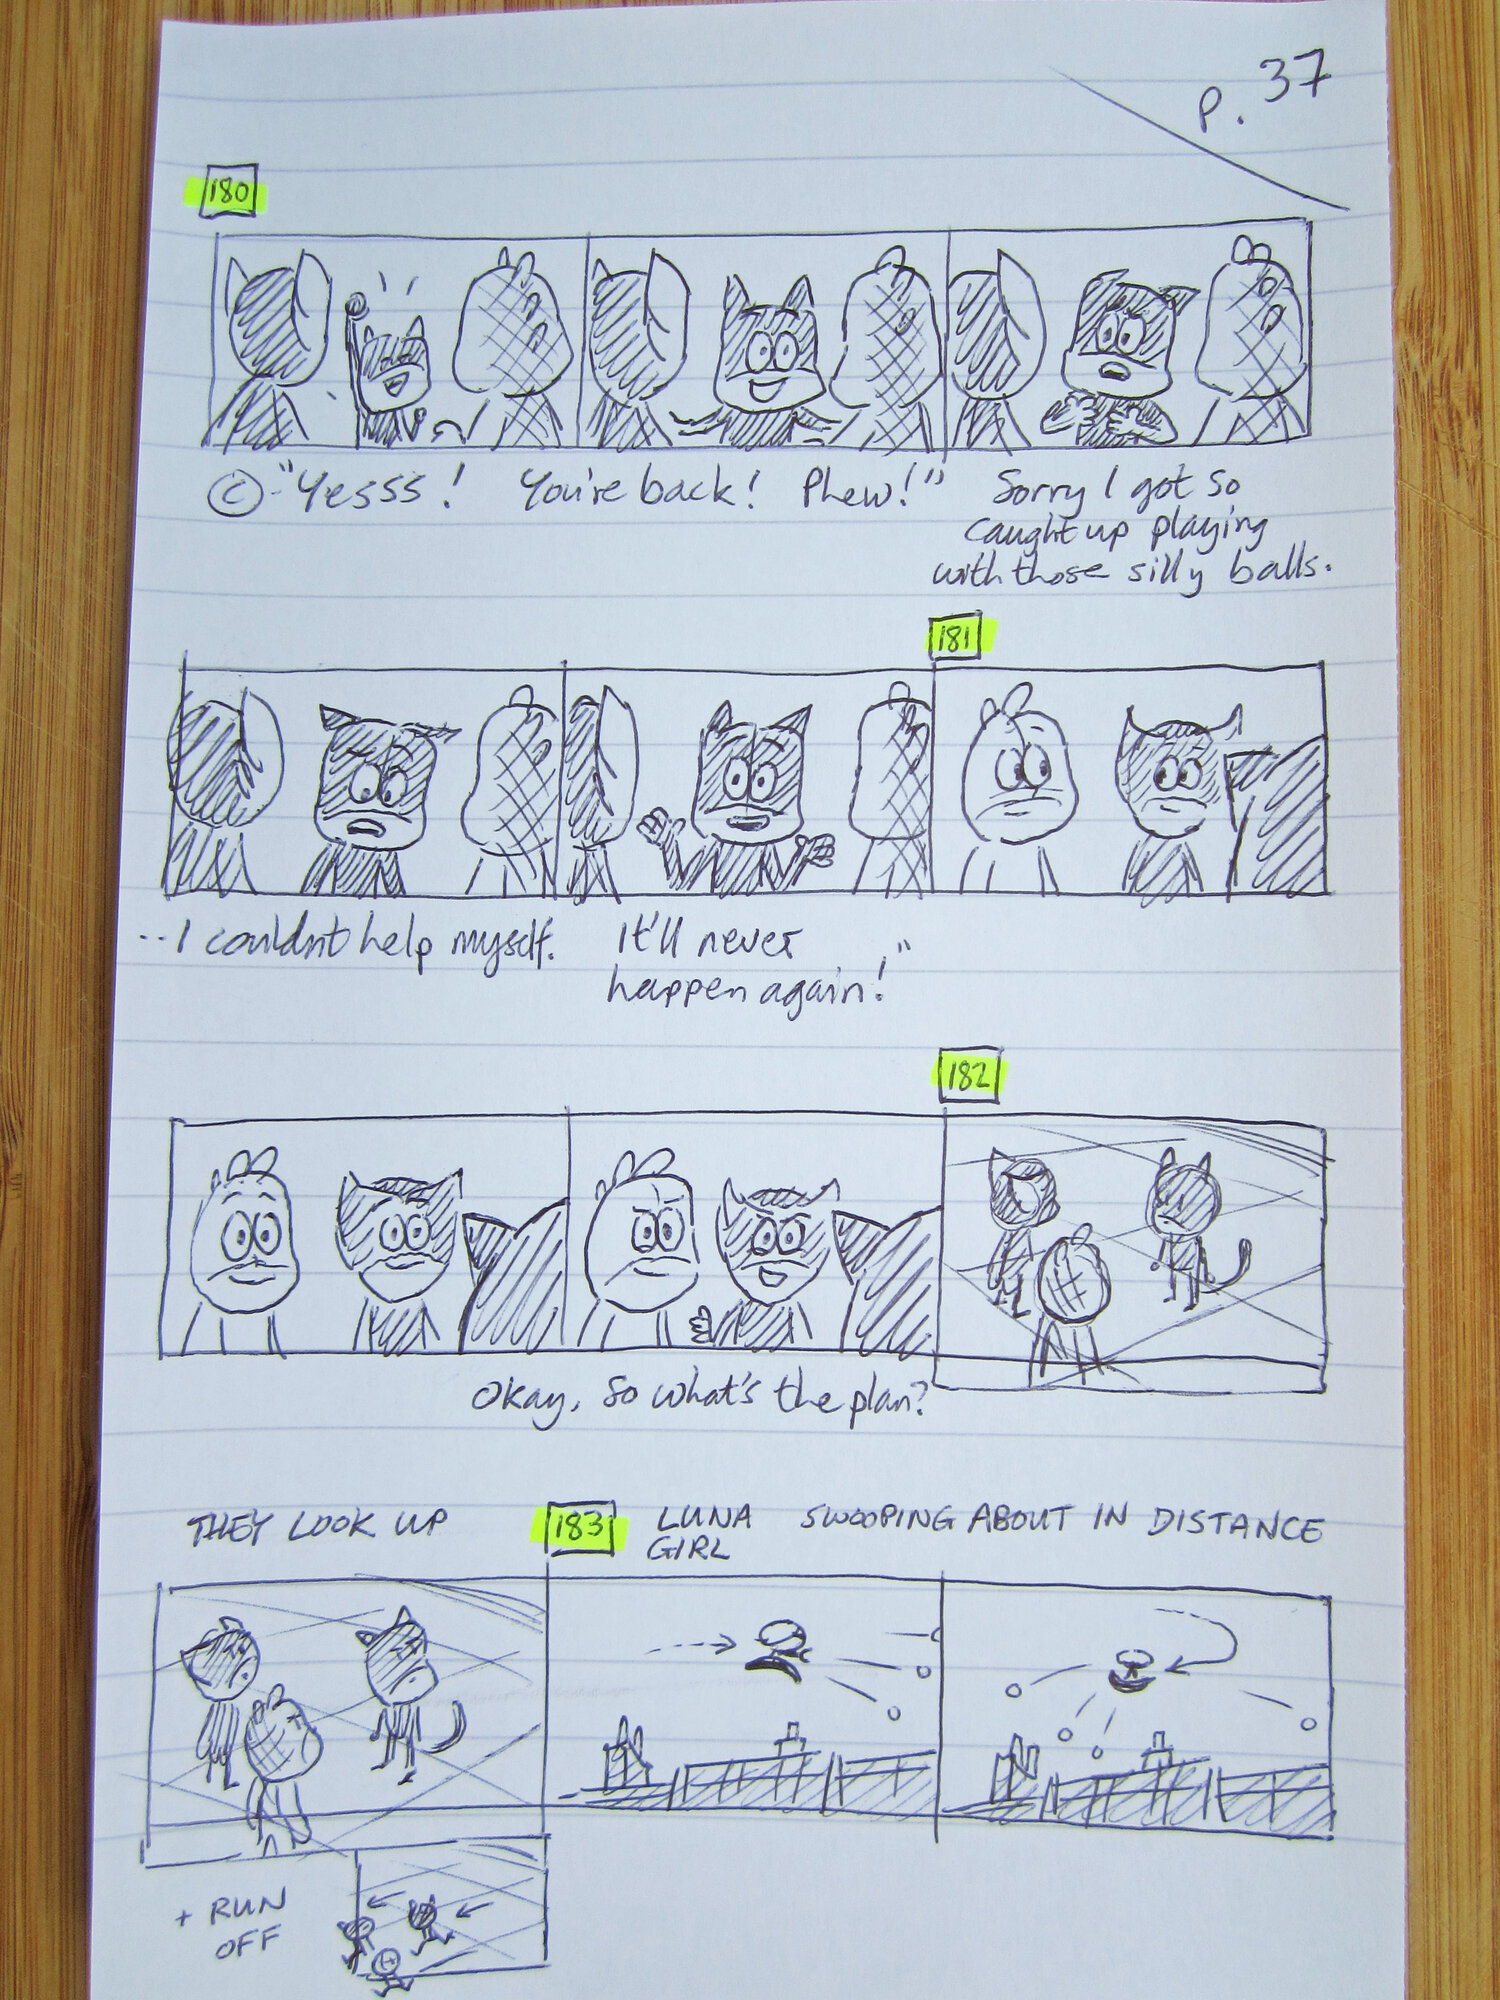 p. 37
180
© "Yesss! You're back! Phew!" Sorry I got so
caught up playing
with those silly balls.
181
..I couldn't help myself. It'll never
happen again!"
182
Okay, so what's the plan?
THEY LOOK UP
183
LUNA SWOOPING ABOUT IN DISTANCE
GIRL
+ RUN
OFF